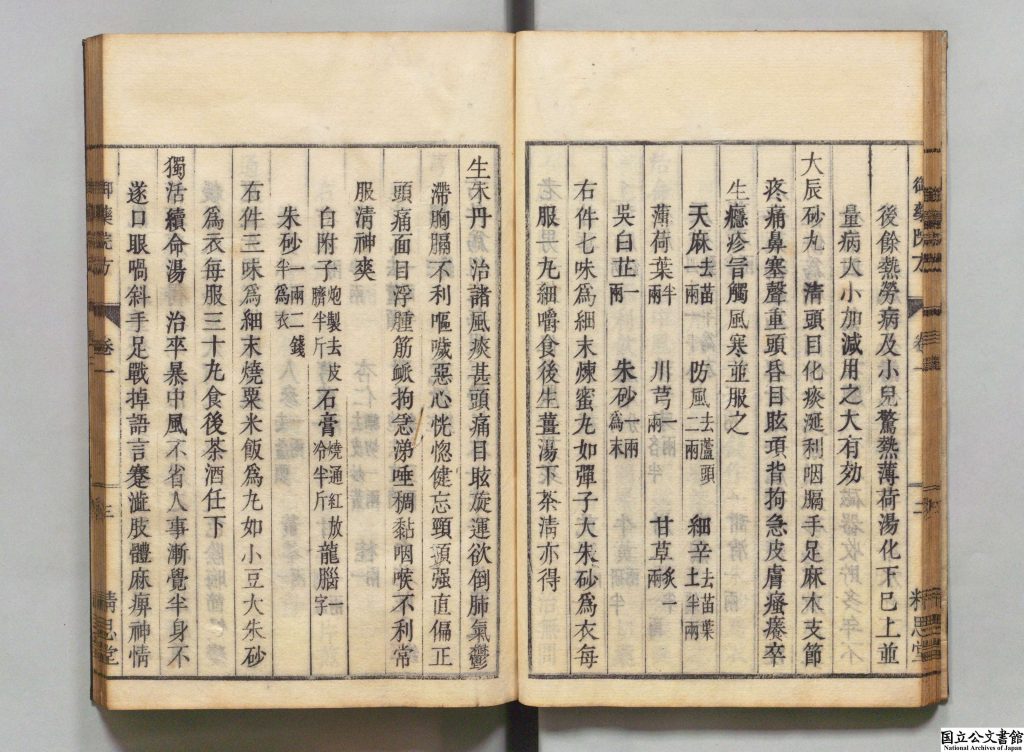 後餘熱勞病及小兒驚熱薄荷湯化下巳上並
量病大小加減用之大有効
大辰砂丸 清頭目化痰涎利咽膈手足麻木支節
疼痛鼻塞聲重頭昏目眩項背拘急皮膚瘙癢卒
生癮疹旨觸風寒並服之
天麻一兩去苗 防風二兩去蘆頭 細辛土半兩去苗葉
薄荷葉半兩 川芎一兩 甘草炙一兩
吳白芷一兩 朱砂一兩為末
右件七味為細末煉蜜丸如彈子大朱砂為衣每
服一丸細嚼食後生薑湯下茶清亦得
御藥院方 卷一 三 精思堂
生朱丹 治諸風痰甚頭痛目眩旋運欲倒肺氣鬱
滯胸膈不利嘔噦惡心恍惚健忘頸項强直偏正
頭痛面目浮腫筋䐜拘急涕唾稠黏咽喉不利常
服清神爽
白附子炮製去皮臍半斤 石膏燒通紅放冷半斤 龍腦一字
朱砂一兩二錢半為衣
右件三味為細末燒粟米飯為丸如小豆大朱砂
為衣每服三十丸食後茶酒任下
獨活續命湯 治卒暴中風不省人事漸覺半身不
遂口眼喎斜手足戰掉語言蹇澁肢體麻痹神情
御藥院方 卷一 三 精思堂
国立公文書館
National Archives of Japan